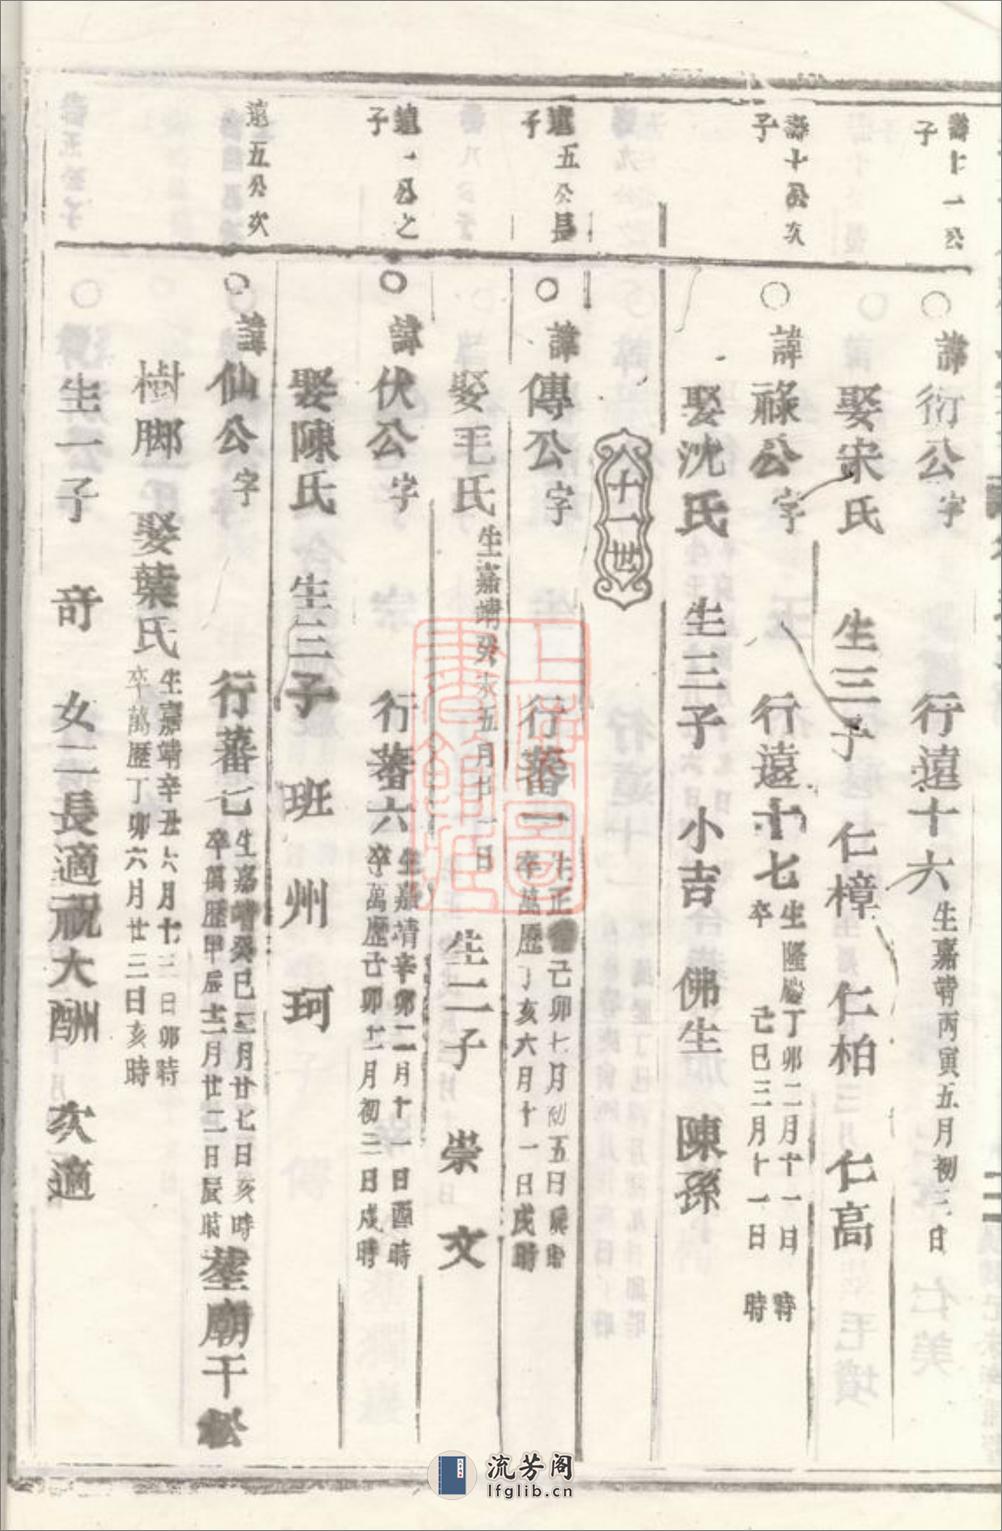 壽十一公
子
諱衍公字 行遠十六 生嘉靖丙寅五月初三日
娶宋氏 生三子 仁樟 仁柏 仁高
壽十公次
子
諱祿公字 行遠十七 生隆慶丁卯二月十一日 時
卒 己巳三月十一日 時
娶沈氏 生三子 小吉 佛生 陳孫
八十一世
遠五公長
子
諱傳公字 行蕃一 生正德己卯七月初五日辰時
卒萬歷丁亥六月十一日戌時
娶毛氏 生嘉靖癸未五月七日 生二子 崇 文
遠一公之
子
諱伏公字 行蕃六 生嘉靖辛卯二月十一日酉時
卒萬歷己卯十二月初二日戌時
娶陳氏 生三子 班 州 珂
遠五公次
諱仙公字 行蕃七 生嘉靖癸巳三月廿七日亥時
卒萬歷甲辰十二月廿二日辰時 塟廟干松
樹脚 娶葉氏 生嘉靖辛丑六月十二日卯時
卒萬歷丁卯六月廿三日亥時
生一子 奇 女二長適祝大酬 次適
上海圖
書館藏
流芳阁
lfglib.cn